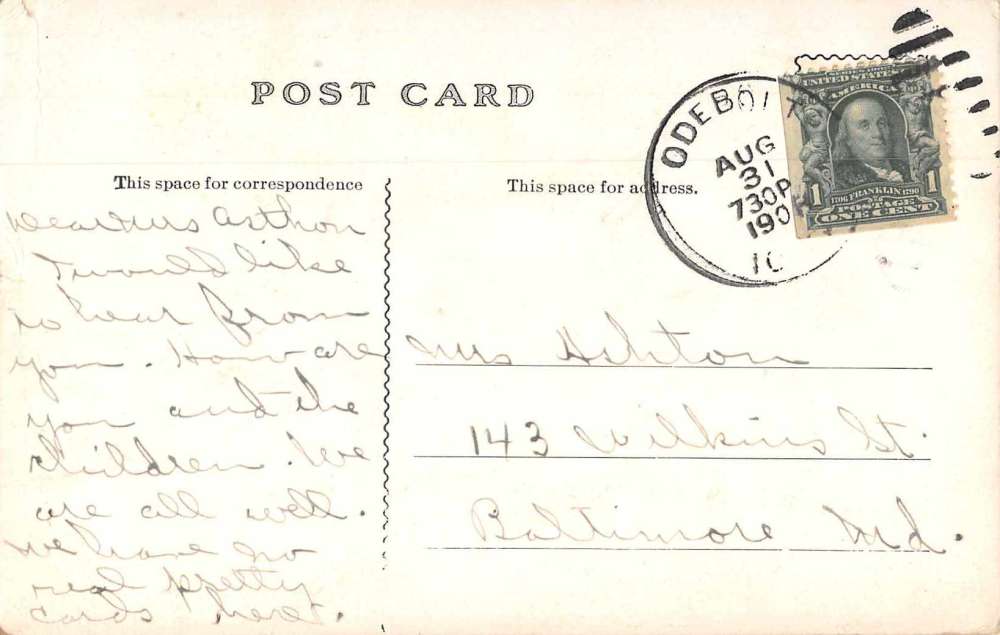 POST CARD
This space for correspondence
This space for address.
ODEBOLT
AUG
31
730P
190
SERIES 1902
UNITED STATES OF
AMERICA
1 1
1706 FRANKLIN 1790
POSTAGE
ONE CENT
Dear Mrs Asthon
I would like
to hear from
you. How are
you and the
children. We
are all well.
We have no
real pretty
cards here.
Mrs Ashton
143 Wilkins St.
Baltimore Md.